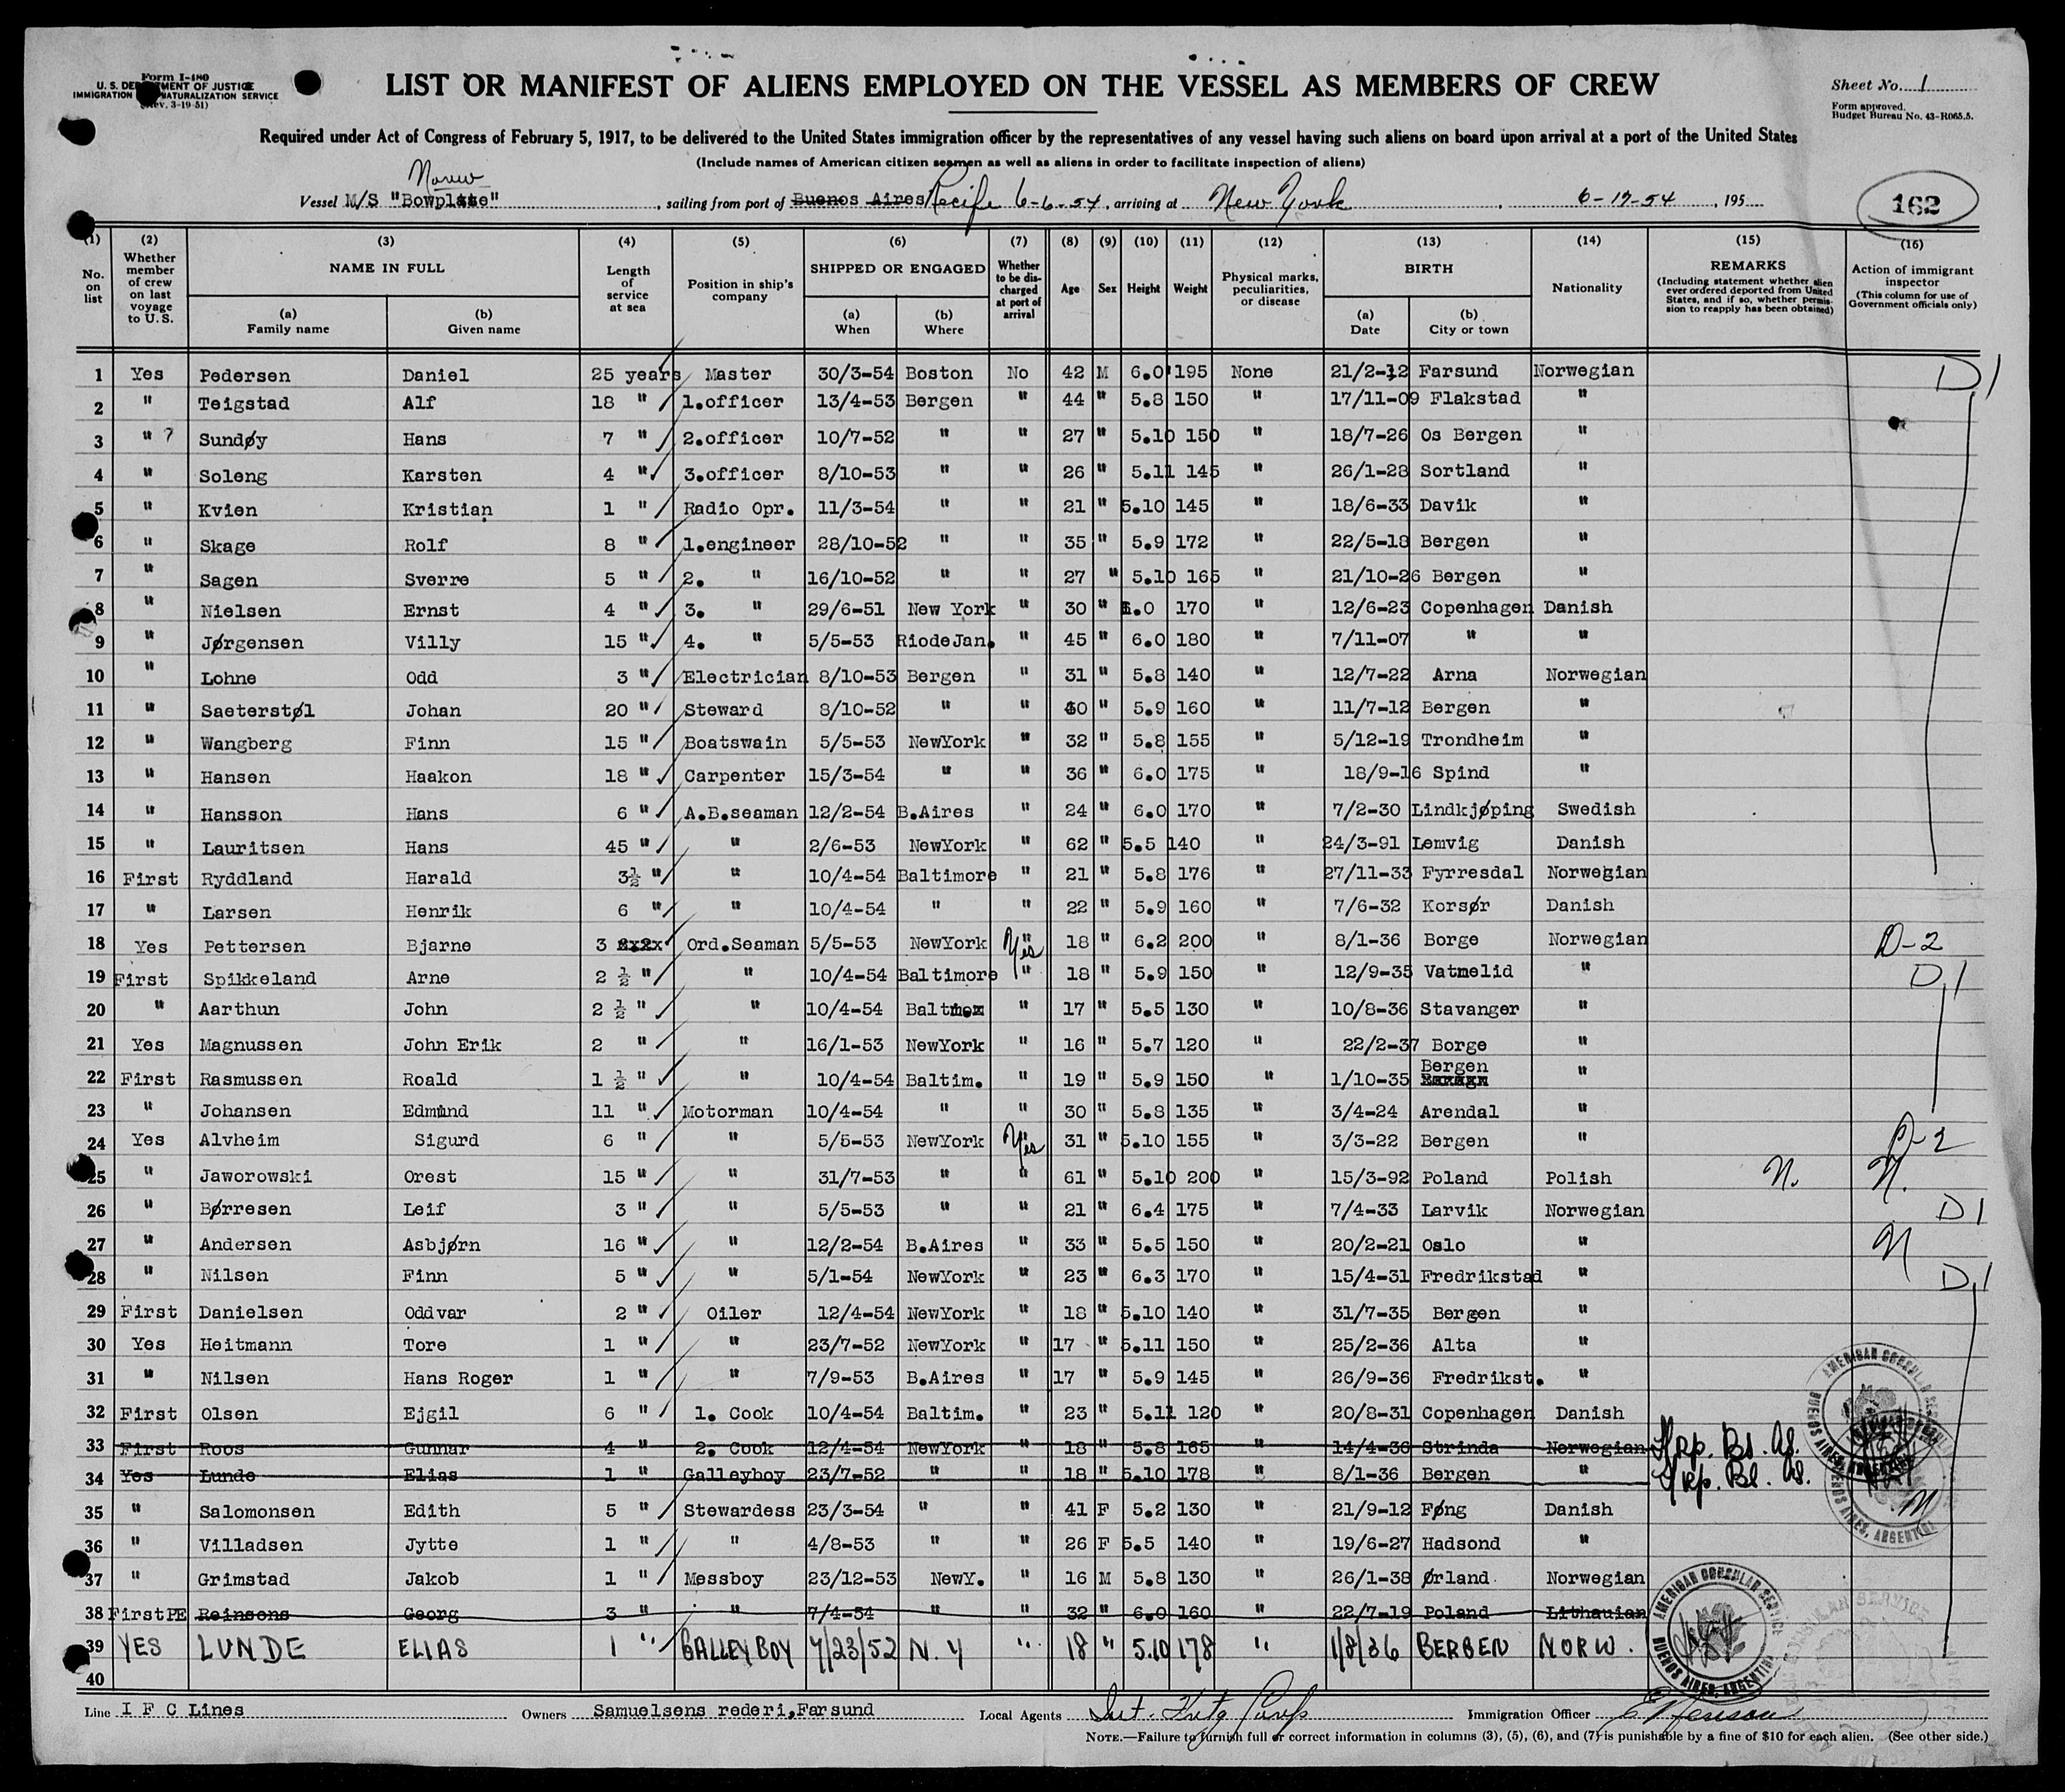 Form I-480
U. S. DEPARTMENT OF JUSTICE
IMMIGRATION NATURALIZATION SERVICE
(Rev. 3-19-51)
LIST OR MANIFEST OF ALIENS EMPLOYED ON THE VESSEL AS MEMBERS OF CREW
Sheet No. 1
Form approved.
Budget Bureau No. 43-R065.5.
Required under Act of Congress of February 5, 1917, to be delivered to the United States immigration officer by the representatives of any vessel having such aliens on board upon arrival at a port of the United States
(Include names of American citizen seamen as well as aliens in order to facilitate inspection of aliens)
Vessel M/S "Bowplate", sailing from port of Buenos Aires Recife 6-6-54, arriving at New York, 6-17-54, 195
162
(1) No. on list (2) Whether member of crew on last voyage to U. S. (3) NAME IN FULL (a) Family name (b) Given name (4) Length of service at sea (5) Position in ship's company (6) SHIPPED OR ENGAGED (a) When (b) Where (7) Whether to be discharged at port of arrival (8) Age (9) Sex (10) Height (11) Weight (12) Physical marks, peculiarities, or disease (13) BIRTH (a) Date (b) City or town (14) Nationality (15) REMARKS (Including statement whether alien ever ordered deported from United States, and if so, whether permission to reapply has been obtained) (16) Action of immigrant inspector (This column for use of Government officials only)
1 Yes Pedersen Daniel 25 years Master 30/3-54 Boston No 42 M 6.0 195 None 21/2-12 Farsund Norwegian D1
2 " Teigstad Alf 18 " 1.officer 13/4-53 Bergen " 44 " 5.8 150 " 17/11-09 Flakstad "
3 " ? Sundøy Hans 7 " 2.officer 10/7-52 " " 27 " 5.10 150 " 18/7-26 Os Bergen "
4 " Soleng Karsten 4 " 3.officer 8/10-53 " " 26 " 5.11 145 " 26/1-28 Sortland "
5 " Kvien Kristian 1 " Radio Opr. 11/3-54 " " 21 " 5.10 145 " 18/6-33 Davik "
6 " Skage Rolf 8 " 1.engineer 28/10-52 " " 35 " 5.9 172 " 22/5-18 Bergen "
7 " Sagen Sverre 5 " 2. " 16/10-52 " " 27 " 5.10 165 " 21/10-26 Bergen "
8 " Nielsen Ernst 4 " 3. " 29/6-51 New York " 30 " 6.0 170 " 12/6-23 Copenhagen Danish
9 " Jørgensen Villy 15 " 4. " 5/5-53 RiodeJan. " 45 " 6.0 180 " 7/11-07 " "
10 " Lohne Odd 3 " Electrician 8/10-53 Bergen " 31 " 5.8 140 " 12/7-22 Arna Norwegian
11 " Saeterstøl Johan 20 " Steward 8/10-52 " " 40 " 5.9 160 " 11/7-12 Bergen "
12 " Wangberg Finn 15 " Boatswain 5/5-53 NewYork " 32 " 5.8 155 " 5/12-19 Trondheim "
13 " Hansen Haakon 18 " Carpenter 15/3-54 " " 36 " 6.0 175 " 18/9-16 Spind "
14 " Hansson Hans 6 " A.B.seaman 12/2-54 B.Aires " 24 " 6.0 170 " 7/2-30 Lindkjøping Swedish
15 " Lauritsen Hans 45 " " 2/6-53 NewYork " 62 " 5.5 140 " 24/3-91 Lemvig Danish
16 First Ryddland Harald 3½ " " 10/4-54 Baltimore " 21 " 5.8 176 " 27/11-33 Fyrresdal Norwegian
17 " Larsen Henrik 6 " " 10/4-54 " " 22 " 5.9 160 " 7/6-32 Korsør Danish
18 Yes Pettersen Bjarne 3 Ord.Seaman 5/5-53 NewYork " Yes 18 " 6.2 200 " 8/1-36 Borge Norwegian D-2
19 First Spikkeland Arne 2 ½ " " 10/4-54 Baltimore " 18 " 5.9 150 " 12/9-35 Vatmelid " D1
20 " Aarthun John 2 ½ " " 10/4-54 " 17 " 5.5 130 " 10/8-36 Stavanger "
21 Yes Magnussen John Erik 2 " " 16/1-53 NewYork " 16 " 5.7 120 " 22/2-37 Borge "
22 First Rasmussen Roald 1 ½ " " 10/4-54 Baltim. " 19 " 5.9 150 " 1/10-35 Bergen "
23 " Johansen Edmund 11 " Motorman 10/4-54 " " 30 " 5.8 135 " 3/4-24 Arendal "
24 Yes Alvheim Sigurd 6 " " 5/5-53 NewYork " Yes 31 " 5.10 155 " 3/3-22 Bergen " D-2
25 " Jaworowski Orest 15 " " 31/7-53 " " 61 " 5.10 200 " 15/3-92 Poland Polish N. N.
26 " Børresen Leif 3 " " 5/5-53 " " 21 " 6.4 175 " 7/4-33 Larvik Norwegian D1
27 " Andersen Asbjørn 16 " " 12/2-54 B.Aires " 33 " 5.5 150 " 20/2-21 Oslo " N
28 " Nilsen Finn 5 " " 5/1-54 NewYork " 23 " 6.3 170 " 15/4-31 Fredrikstad " D1
29 First Danielsen Oddvar 2 " Oiler 12/4-54 NewYork " 18 " 5.10 140 " 31/7-35 Bergen "
30 Yes Heitmann Tore 1 " " 23/7-52 NewYork " 17 " 5.11 150 " 25/2-36 Alta "
31 " Nilsen Hans Roger 1 " " 7/9-53 B.Aires " 17 " 5.9 145 " 26/9-36 Fredrikst. "
32 First Olsen Ejgil 6 " 1. Cook 10/4-54 Baltim. " 23 " 5.11 120 " 20/8-31 Copenhagen Danish
33 First Roos Gunnar 4 " 2. Cook 12/4-54 NewYork " 18 " 5.8 165 " 14/4-36 Strinda Norwegian Bs. As.
34 Yes Lunde Elias 1 " Galleyboy 23/7-52 " " 18 " 5.10 178 " 8/1-36 Bergen " Bs. As.
35 " Salomonsen Edith 5 " Stewardess 23/3-54 " " 41 F 5.2 130 " 21/9-12 Føng Danish N
36 " Villadsen Jytte 1 " " 4/8-53 " " 26 F 5.5 140 " 19/6-27 Hadsond "
37 " Grimstad Jakob 1 " Messboy 23/12-53 NewY. " 16 M 5.8 130 " 26/1-38 Ørland Norwegian
38 First PE Reinsons Georg 3 " " 7/4-54 " " 32 " 6.0 160 " 22/7-19 Poland Lithauian
39 YES LUNDE ELIAS 1 " GALLEYBOY 7/23/52 N.Y " 18 " 5.10 178 " 1/8/36 BERGEN NORW.
40
AMERICAN CONSULAR SERVICE BUENOS AIRES, ARGENTINA
Line I F C Lines Owners Samuelsens rederi,Farsund Local Agents Int. Frtg Corp Immigration Officer
NOTE.—Failure to furnish full or correct information in columns (3), (5), (6), and (7) is punishable by a fine of $10 for each alien. (See other side.)